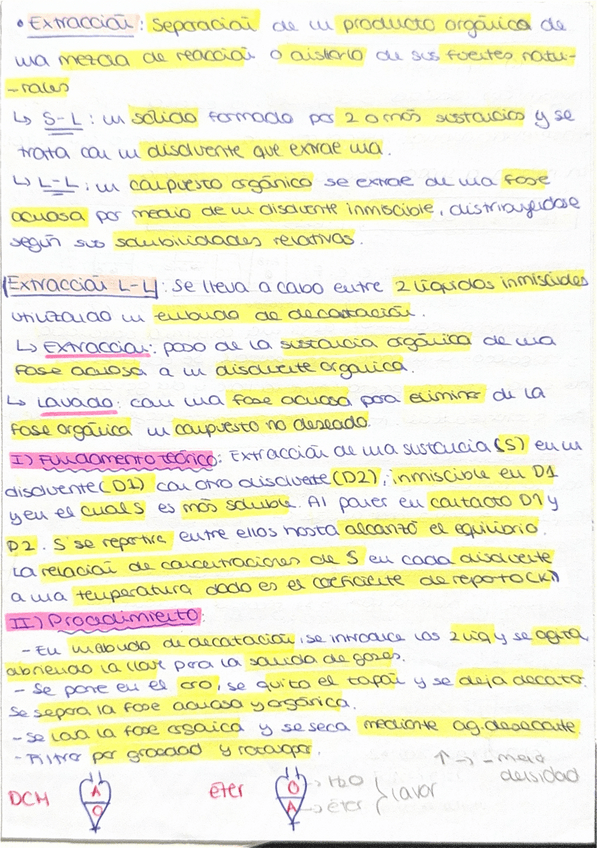 • Extracción: Separación de un producto orgánico de
una mezcla de reacción o aislarlo de sus fuentes natu-
-rales
↳ S-L: un sólido formado por 2 o más sustancias y se
trata con un disolvente que extrae una.
↳ L-L: un compuesto orgánico se extrae de una fase
acuosa por medio de un disolvente inmiscible, distribuyéndose
según sus solubilidades relativas.
Extracción L-L: Se lleva a cabo entre 2 líquidos inmiscibles
utilizando un embudo de decantación.
↳ Extracción: paso de la sustancia orgánica de una
fase acuosa a un disolvente orgánica.
↳ Lavado: con una fase acuosa para eliminar de la
fase orgánica un compuesto no deseado.
I) Fundamento teórico: Extracción de una sustancia (S) en un
disolvente (D1) con otro disolvente (D2), inmiscible en D1
y en el cual S es más soluble. Al poner en contacto D1 y
D2. S se repartirá entre ellos hasta alcanzó el equilibrio.
La relación de concentraciones de S en cada disolvente
a una temperatura dada es el coeficiente de reparto (K)
II) Procedimiento:
- En un embudo de decantación, se introduce los 2 líq y se agita,
abriendo la llave para la salida de gases.
- Se pone en el aro, se quita el tapón y se deja decantar.
Se separa la fase acuosa y orgánica.
- Se lava la fase orgánica y se seca mediante ag. desecante.
- Filtro por gravedad y rotavapor.
↑ → - menos
densidad
DCM A O éter O → H2O A → éter } lavar